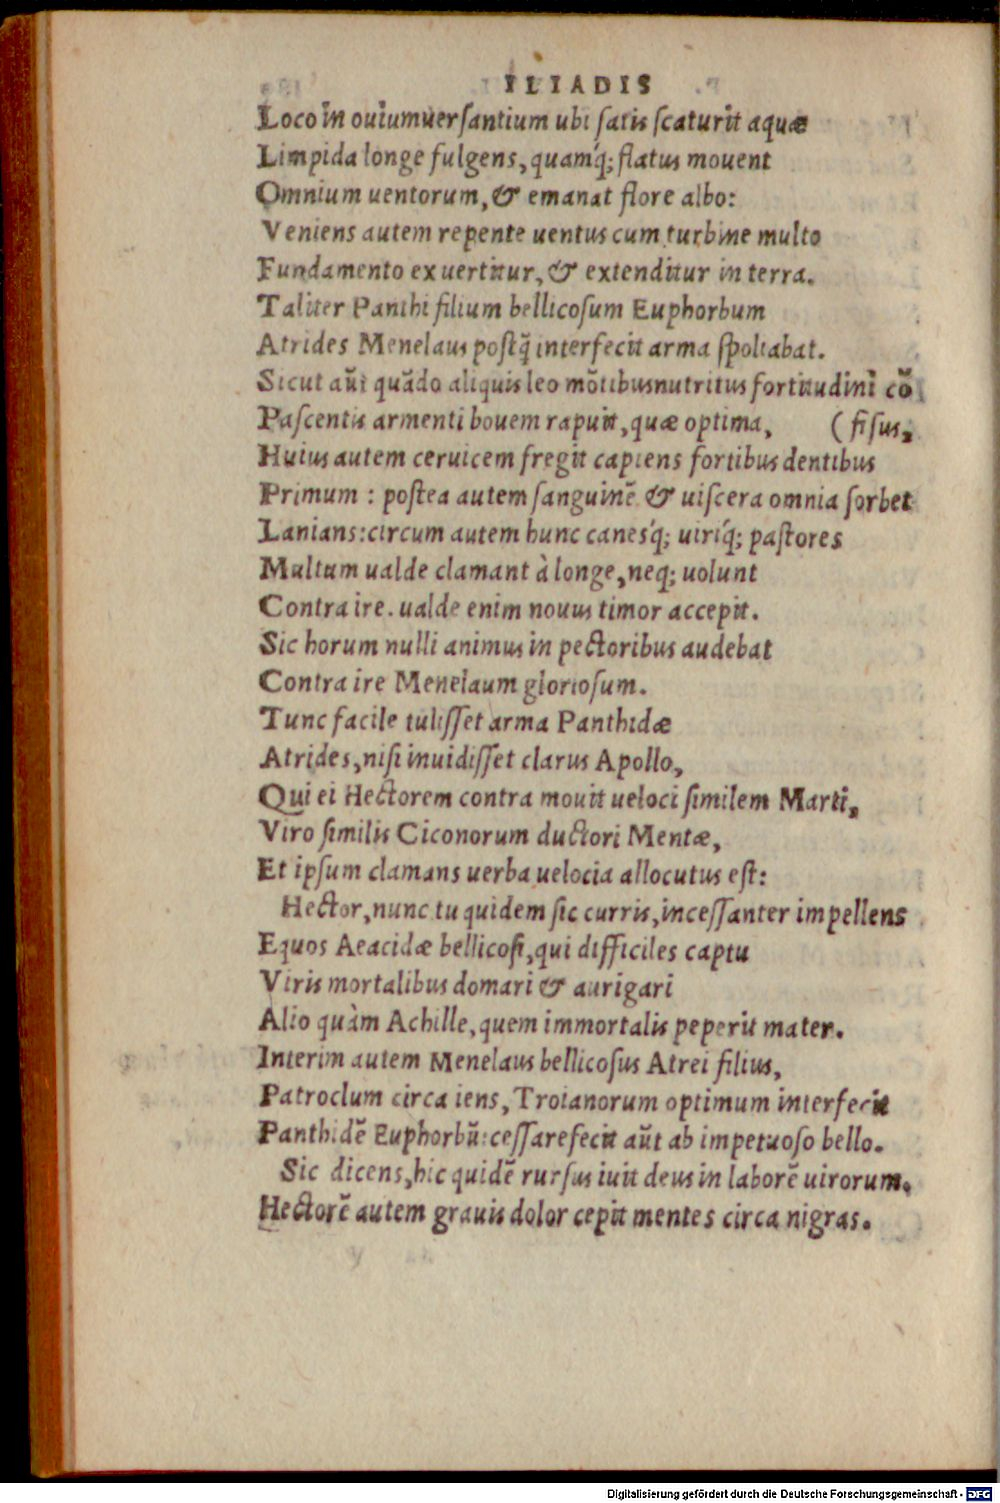 ILIADIS
Loco in ouiumuersantium ubi satis scaturit aquæ
Limpida longe fulgens, quamq́; flatus mouent
Omnium uentorum, & emanat flore albo:
Veniens autem repente uentus cum turbine multo
Fundamento exuertitur, & extenditur in terra.
Taliter Panthi filium bellicosum Euphorbum
Atrides Menelaus postq̃ interfecit arma spoliabat.
Sicut aũt quãdo aliquis leo mõtibusnutritus fortitudini cõ
Pascentis armenti bouem rapuit, quæ optima, (fisus,
Huius autem ceruicem fregit capiens fortibus dentibus
Primum : postea autem sanguinẽ & uiscera omnia sorbet
Lanians: circum autem hunc canesq́; uiriq́; pastores
Multum ualde clamant à longe, neq; uolunt
Contra ire. ualde enim nouus timor accepit.
Sic horum nulli animus in pectoribus audebat
Contra ire Menelaum gloriosum.
Tunc facile tulisset arma Panthidæ
Atrides, nisi inuidisset clarus Apollo,
Qui ei Hectorem contra mouit ueloci similem Marti,
Viro similis Ciconorum ductori Mentæ,
Et ipsum clamans uerba uelocia allocutus est:
Hector, nunc tu quidem sic curris, incessanter impellens
Equos Aeacidæ bellicosi, qui difficiles captu
Viris mortalibus domari & aurigari
Alio quàm Achille, quem immortalis peperit mater.
Interim autem Menelaus bellicosus Atrei filius,
Patroclum circa iens, Troianorum optimum interfecit
Panthidẽ Euphorbũ: cessarefecit aũt ab impetuoso bello.
Sic dicens, hic quidẽ rursus iuit deus in laborẽ uirorum.
Hectorẽ autem grauis dolor cepit mentes circa nigras.
Digitalisierung gefördert durch die Deutsche Forschungsgemeinschaft - DFG